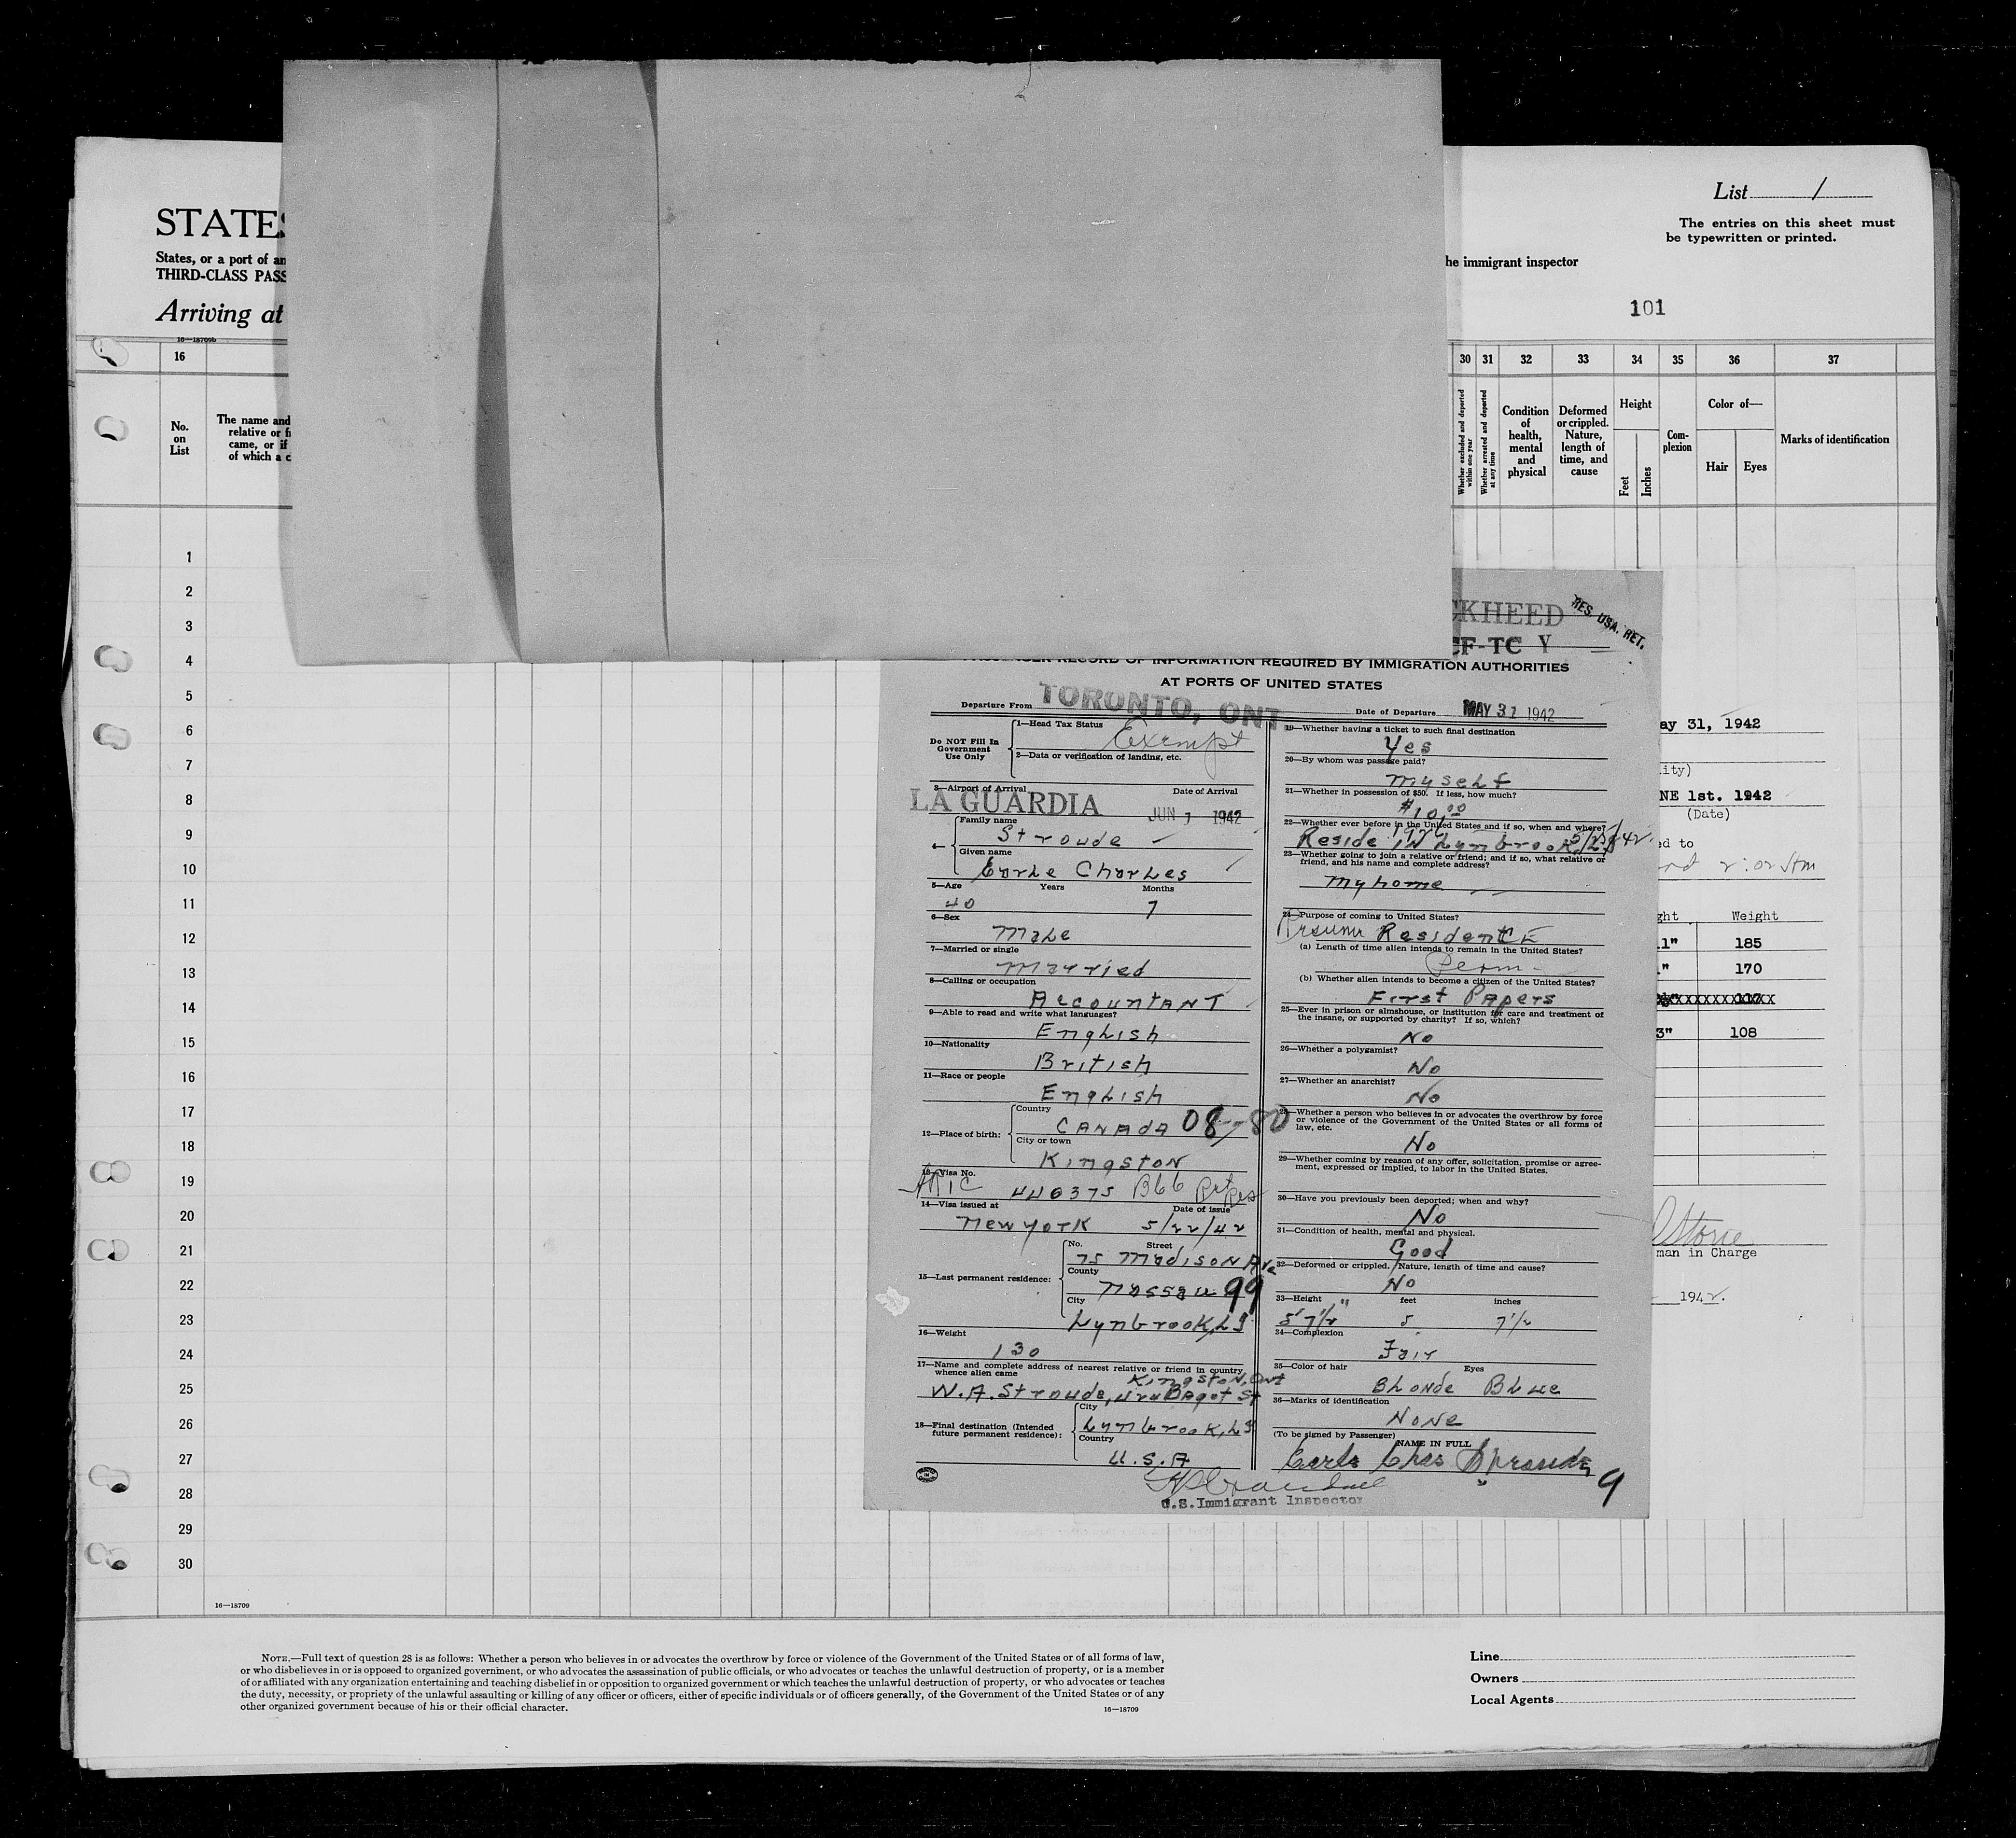 List 1
The entries on this sheet must
be typewritten or printed.
STATES
States, or a port of an
THIRD-CLASS PASS
he immigrant inspector
Arriving at
101
16—18709b
16
30 31 32 33 34 35 36 37
No.
on
List
The name and
relative or f
came, or if
of which a c
Whether excluded and deported within one year
Whether arrested and deported at any time
Condition
of
health,
mental
and
physical
Deformed
or crippled.
Nature,
length of
time, and
cause
Height
Feet
Inches
Com-
plexion
Color of—
Hair
Eyes
Marks of identification
1
2
3
4
5
6
7
8
9
10
11
12
13
14
15
16
17
18
19
20
21
22
23
24
25
26
27
28
29
30
16—18709
CKHEED
RES. USA. RET.
CF-TC Y
PASSENGER RECORD OF INFORMATION REQUIRED BY IMMIGRATION AUTHORITIES
AT PORTS OF UNITED STATES
Departure From TORONTO, ONT
Date of Departure MAY 31 1942
Do NOT Fill In
Government
Use Only
1—Head Tax Status
Exempt
2—Data or verification of landing, etc.
3—Airport of Arrival
Date of Arrival
LA GUARDIA JUN 1 1942
4—
Family name
Stroude
Given name
Earle Charles
5—Age Years Months
40 7
6—Sex
Male
7—Married or single
Married
8—Calling or occupation
Accountant
9—Able to read and write what languages?
English
10—Nationality
British
11—Race or people
English
12—Place of birth:
Country
Canada 08-80
City or town
Kingston
13—Visa No.
ARIC 440375 B66
14—Visa issued at Date of issue
New York 5/22/42
15—Last permanent residence:
No. Street
75 Madison Ave
County
Nassau 99
City
Lynbrook, LI
16—Weight
130
17—Name and complete address of nearest relative or friend in country
whence alien came
Kingston, Ont
W.A. Stroude, Bagot St
18—Final destination (Intended
future permanent residence):
City
Lynbrook, LI
Country
U.S.A
U.S. Immigrant Inspector
19—Whether having a ticket to such final destination
Yes
20—By whom was passage paid?
Myself
21—Whether in possession of $50. If less, how much?
$10.00
22—Whether ever before in the United States and if so, when and where?
Reside in Lynbrook
23—Whether going to join a relative or friend; and if so, what relative or
friend, and his name and complete address?
My home
24—Purpose of coming to United States?
Resume Residence
(a) Length of time alien intends to remain in the United States?
Perm.
(b) Whether alien intends to become a citizen of the United States?
First Papers
25—Ever in prison or almshouse, or institution for care and treatment of
the insane, or supported by charity? If so, which?
No
26—Whether a polygamist?
No
27—Whether an anarchist?
No
28—Whether a person who believes in or advocates the overthrow by force
or violence of the Government of the United States or all forms of
law, etc.
No
29—Whether coming by reason of any offer, solicitation, promise or agree-
ment, expressed or implied, to labor in the United States.
30—Have you previously been deported; when and why?
No
31—Condition of health, mental and physical.
Good
32—Deformed or crippled. Nature, length of time and cause?
No
33—Height feet inches
5' 7½" 5 7½
34—Complexion
Fair
35—Color of hair Eyes
Blonde Blue
36—Marks of identification
None
(To be signed by Passenger)
NAME IN FULL
Earle Chas Stroude
9
ay 31, 1942
lity)
NE 1st. 1942
(Date)
ed to
ght Weight
11" 185
" 170
3" 108
Stone
man in Charge
1942.
NOTE.—Full text of question 28 is as follows: Whether a person who believes in or advocates the overthrow by force or violence of the Government of the United States or of all forms of law,
or who disbelieves in or is opposed to organized government, or who advocates the assassination of public officials, or who advocates or teaches the unlawful destruction of property, or is a member
of or affiliated with any organization entertaining and teaching disbelief in or opposition to organized government or which teaches the unlawful destruction of property, or who advocates or teaches
the duty, necessity, or propriety of the unlawful assaulting or killing of any officer or officers, either of specific individuals or of officers generally, of the Government of the United States or of any
other organized government because of his or their official character.
16—18709
Line
Owners
Local Agents